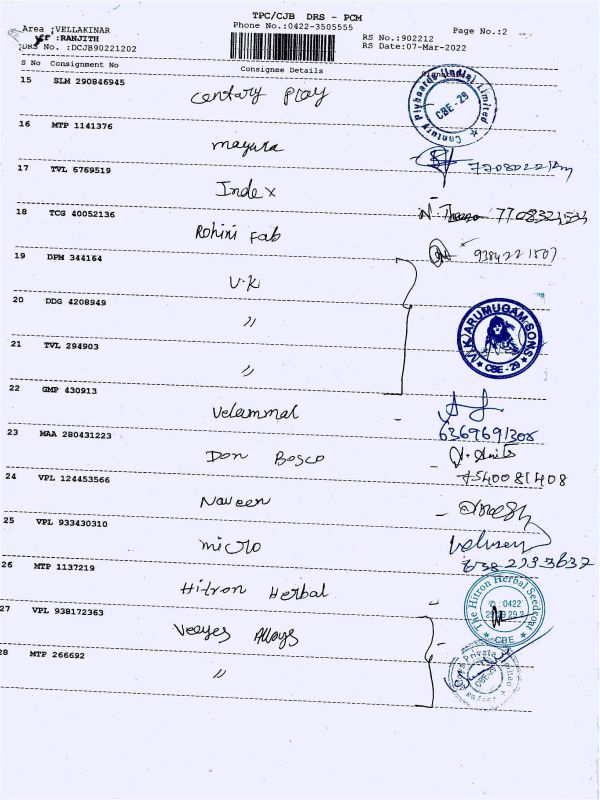 TPC/CJB DRS - PCM
Area :VELLAKINAR Phone No.:0422-3505555 Page No.:2
:RANJITH RS No.:902212
DRS No. :DCJB90221202 RS Date:07-Mar-2022
S No Consignment No Consignee Details Signature
15 SLM 290846945
Century Play
Century Plyboards India Limited
CBE - 29
16 MTP 1141376
mayura
17 TVL 6769519
Index
18 TCG 40052136
Rohini Fab
9384221507
19 DPM 344164
V.K
20 DDG 4208949
"
V.K. ARUMUGAM SONS
CBE - 29
21 TVL 294903
"
22 GMP 430913
Velammal
6369691308
23 MAA 280431223
Don Bosco
7540081408
24 VPL 124453566
Naveen
25 VPL 933430310
micro
26 MTP 1137219
Hitron Herbal
The Hitron Herbal Seedscar
0422
CBE
27 VPL 938172363
Veeyes Alloys
28 MTP 266692
"
Private Limited
CBE-29